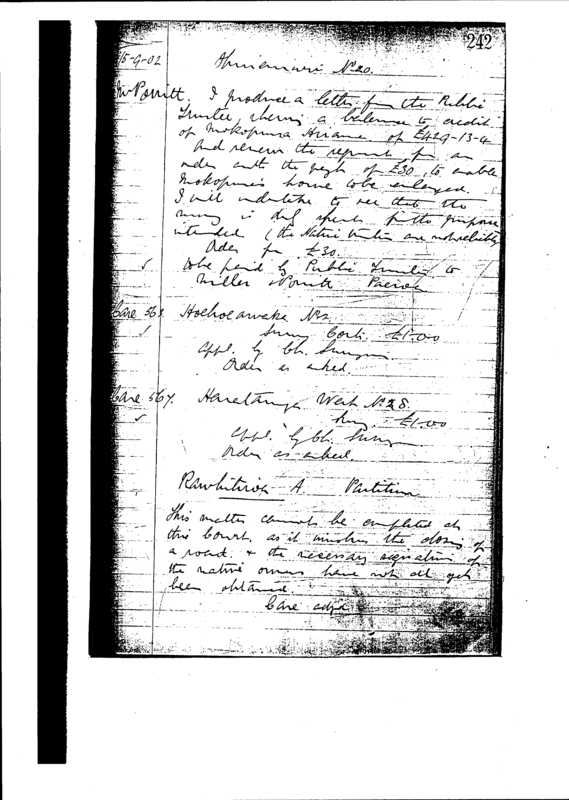 242
15-9-02
No 20.
Mr Porritt, I produce a letter from the Public
Trustee, showing a balance to credit
of Mokopuna Ariana of £429-13-4
And renew the request for an
order with the of £30, to enable
Mokopuna's house to be enlarged.
I will undertake to see that the
money is spent for the purpose
intended (the Native are not
Order for £30.
✓ to be paid by Public Trustee to
Miller & Porritt Paeroa
Case 568. No 2
✓ Survey Costs. £1.0.0
Appl. by Ch. Surveyor
Order as asked.
Case 567. West No 28.
✓ £1.0.0
Appl. by Ch. Surveyor
Order as asked.
A. Partition
This matter cannot be completed at
this Court, as it involves the closing of
a road. & the necessary signatures of
the native owners have not all yet
been obtained.
Case adjd